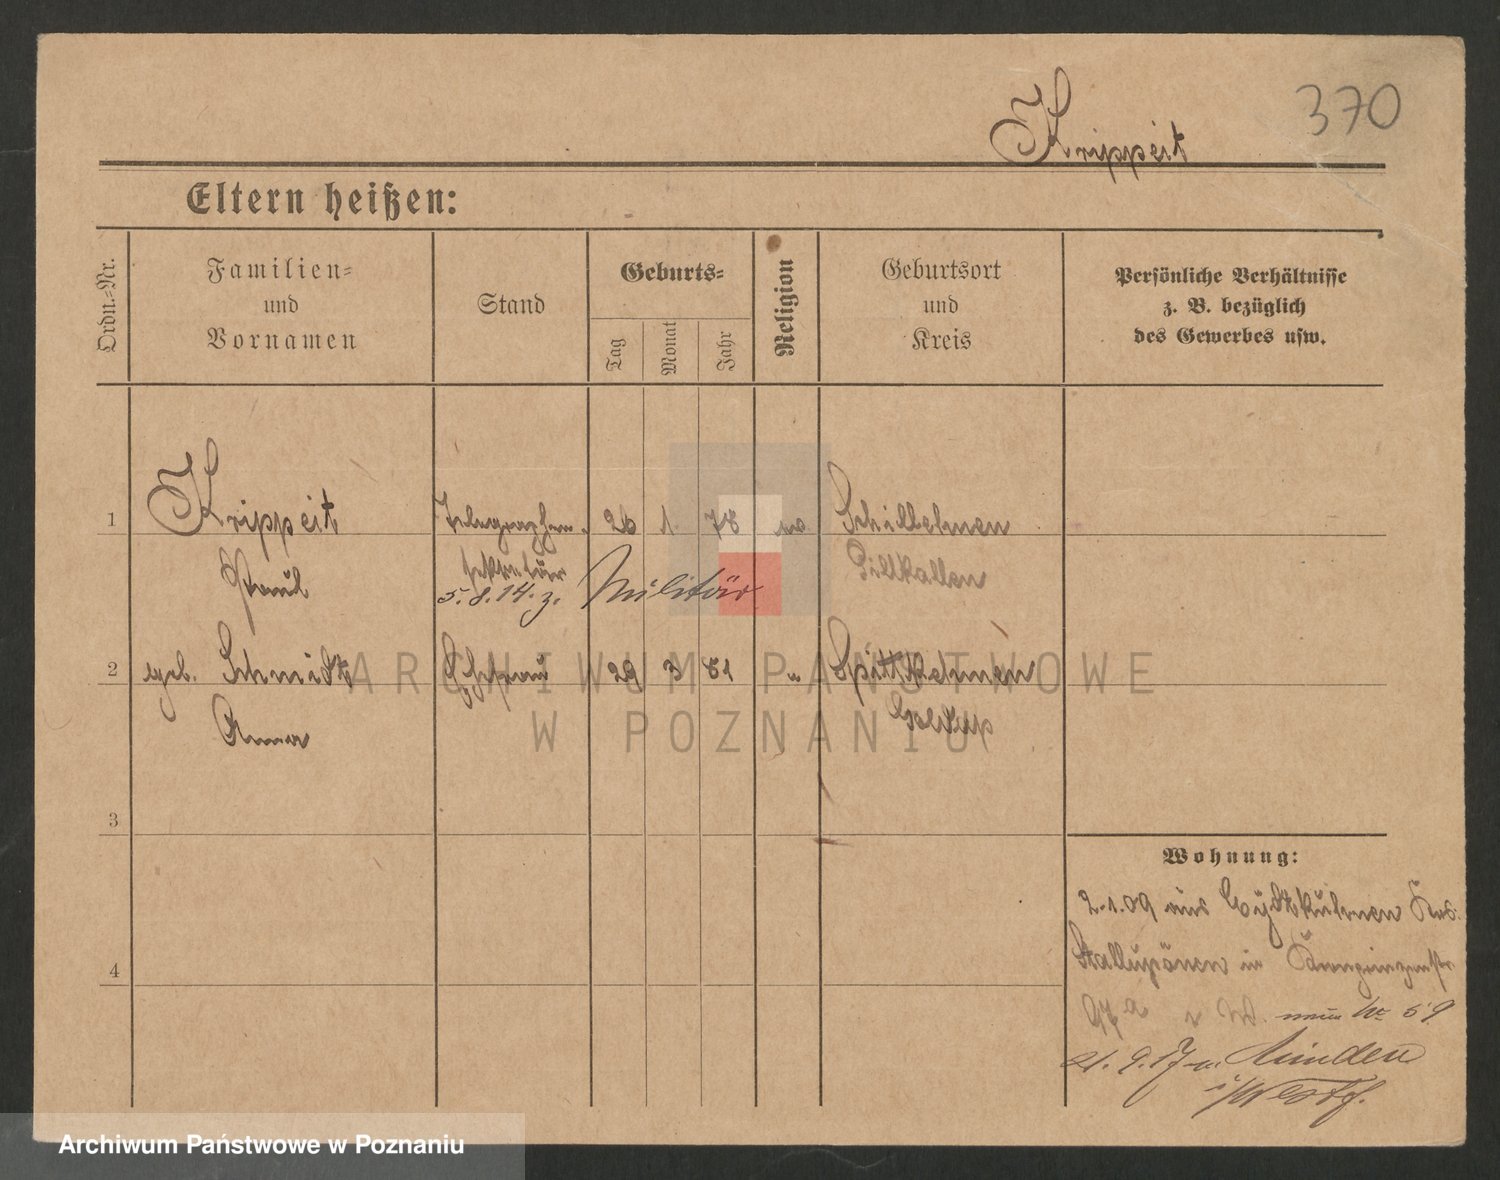 370
Krippeit
Eltern heißen:
Ordn.-Nr.
Familien-
und
Vornamen
Stand
Geburts-
Tag
Monat
Jahr
Religion
Geburtsort
und
Kreis
Persönliche Verhältnisse
z. B. bezüglich
des Gewerbes usw.
1 Krippeit Telegraphen- 26 1 78 ev Schillehnen
Paul sekretär Pillkallen
5.8.14. z. Militär
2 geb. Schmidt Ehefrau 29 3 81 „
Anna Goldap
3
4
Wohnung:
2.1.09 aus Eydtkuhnen Krs.
Stallupönen in Kronprinzenstr
97a neue Nr 59
21.9.17 n. Minden
i/Westf.
ARCHIWUM PAŃSTWOWE
W POZNANIU
Archiwum Państwowe w Poznaniu